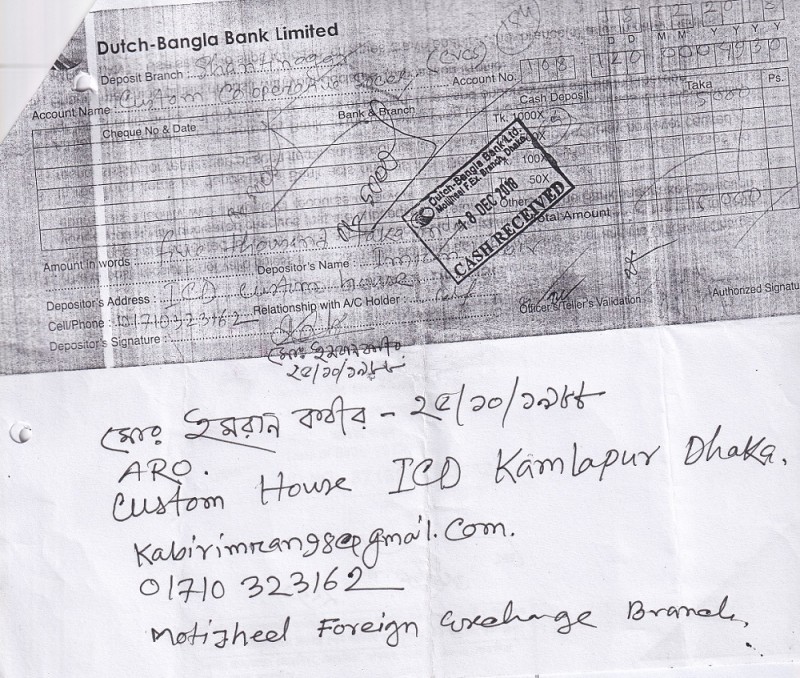 Dutch-Bangla Bank Limited
Deposit Branch : Shantinagar
D D M M Y Y Y Y
Account Name : Custom Co-operative (CVCS) Account No. 108 120
Cheque No & Date Bank & Branch Cash Deposit Taka Ps.
Tk. 1000X 5000
100X
50X
Other
Total Amount
Dutch-Bangla Bank Ltd.
Motijheel F.Ex. Branch, Dhaka
18 DEC 2018
CASH RECEIVED
Amount in words five thousand taka
Depositor's Name :
Depositor's Address : ICD Custom house
Relationship with A/C Holder :
Cell/Phone : 01710323162
Depositor's Signature :
Officer's/Teller's Validation
Authorized Signatu
মোঃ ইমরান কবীর
২৫/১০/১৯৮৮
মোঃ ইমরান কবীর - ২৫/১০/১৯৮৮
ARO.
Custom House ICD Kamlapur Dhaka.
Kabirimran98@gmail.com.
01710 323162
Motijheel Foreign Exchange Branch,